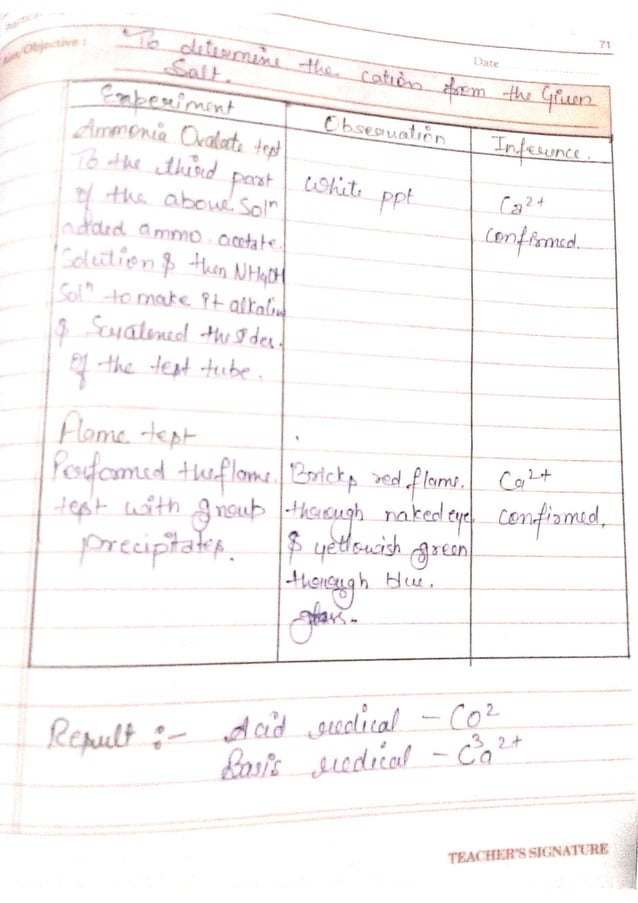 71
Aim/Objective :
Date
To determine the cation from the Given
Salt.
Experiment
Observation
Inference.
Ammonia Oxalate test
To the third part
of the above Solⁿ
added ammo. acetate.
Solution & then NH4OH
Solⁿ to make it alkaline
& the sides.
of the test tube.
White ppt
Ca²⁺
confirmed.
Flame test
Performed the flame.
test with group
precipitates.
Bricks red flame.
through naked eye
& yellowish green
through blue.
glass.
Ca²⁺
confirmed.
Result :- Acid redical - CO²
3
Basis redical - Ca²⁺
TEACHER'S SIGNATURE